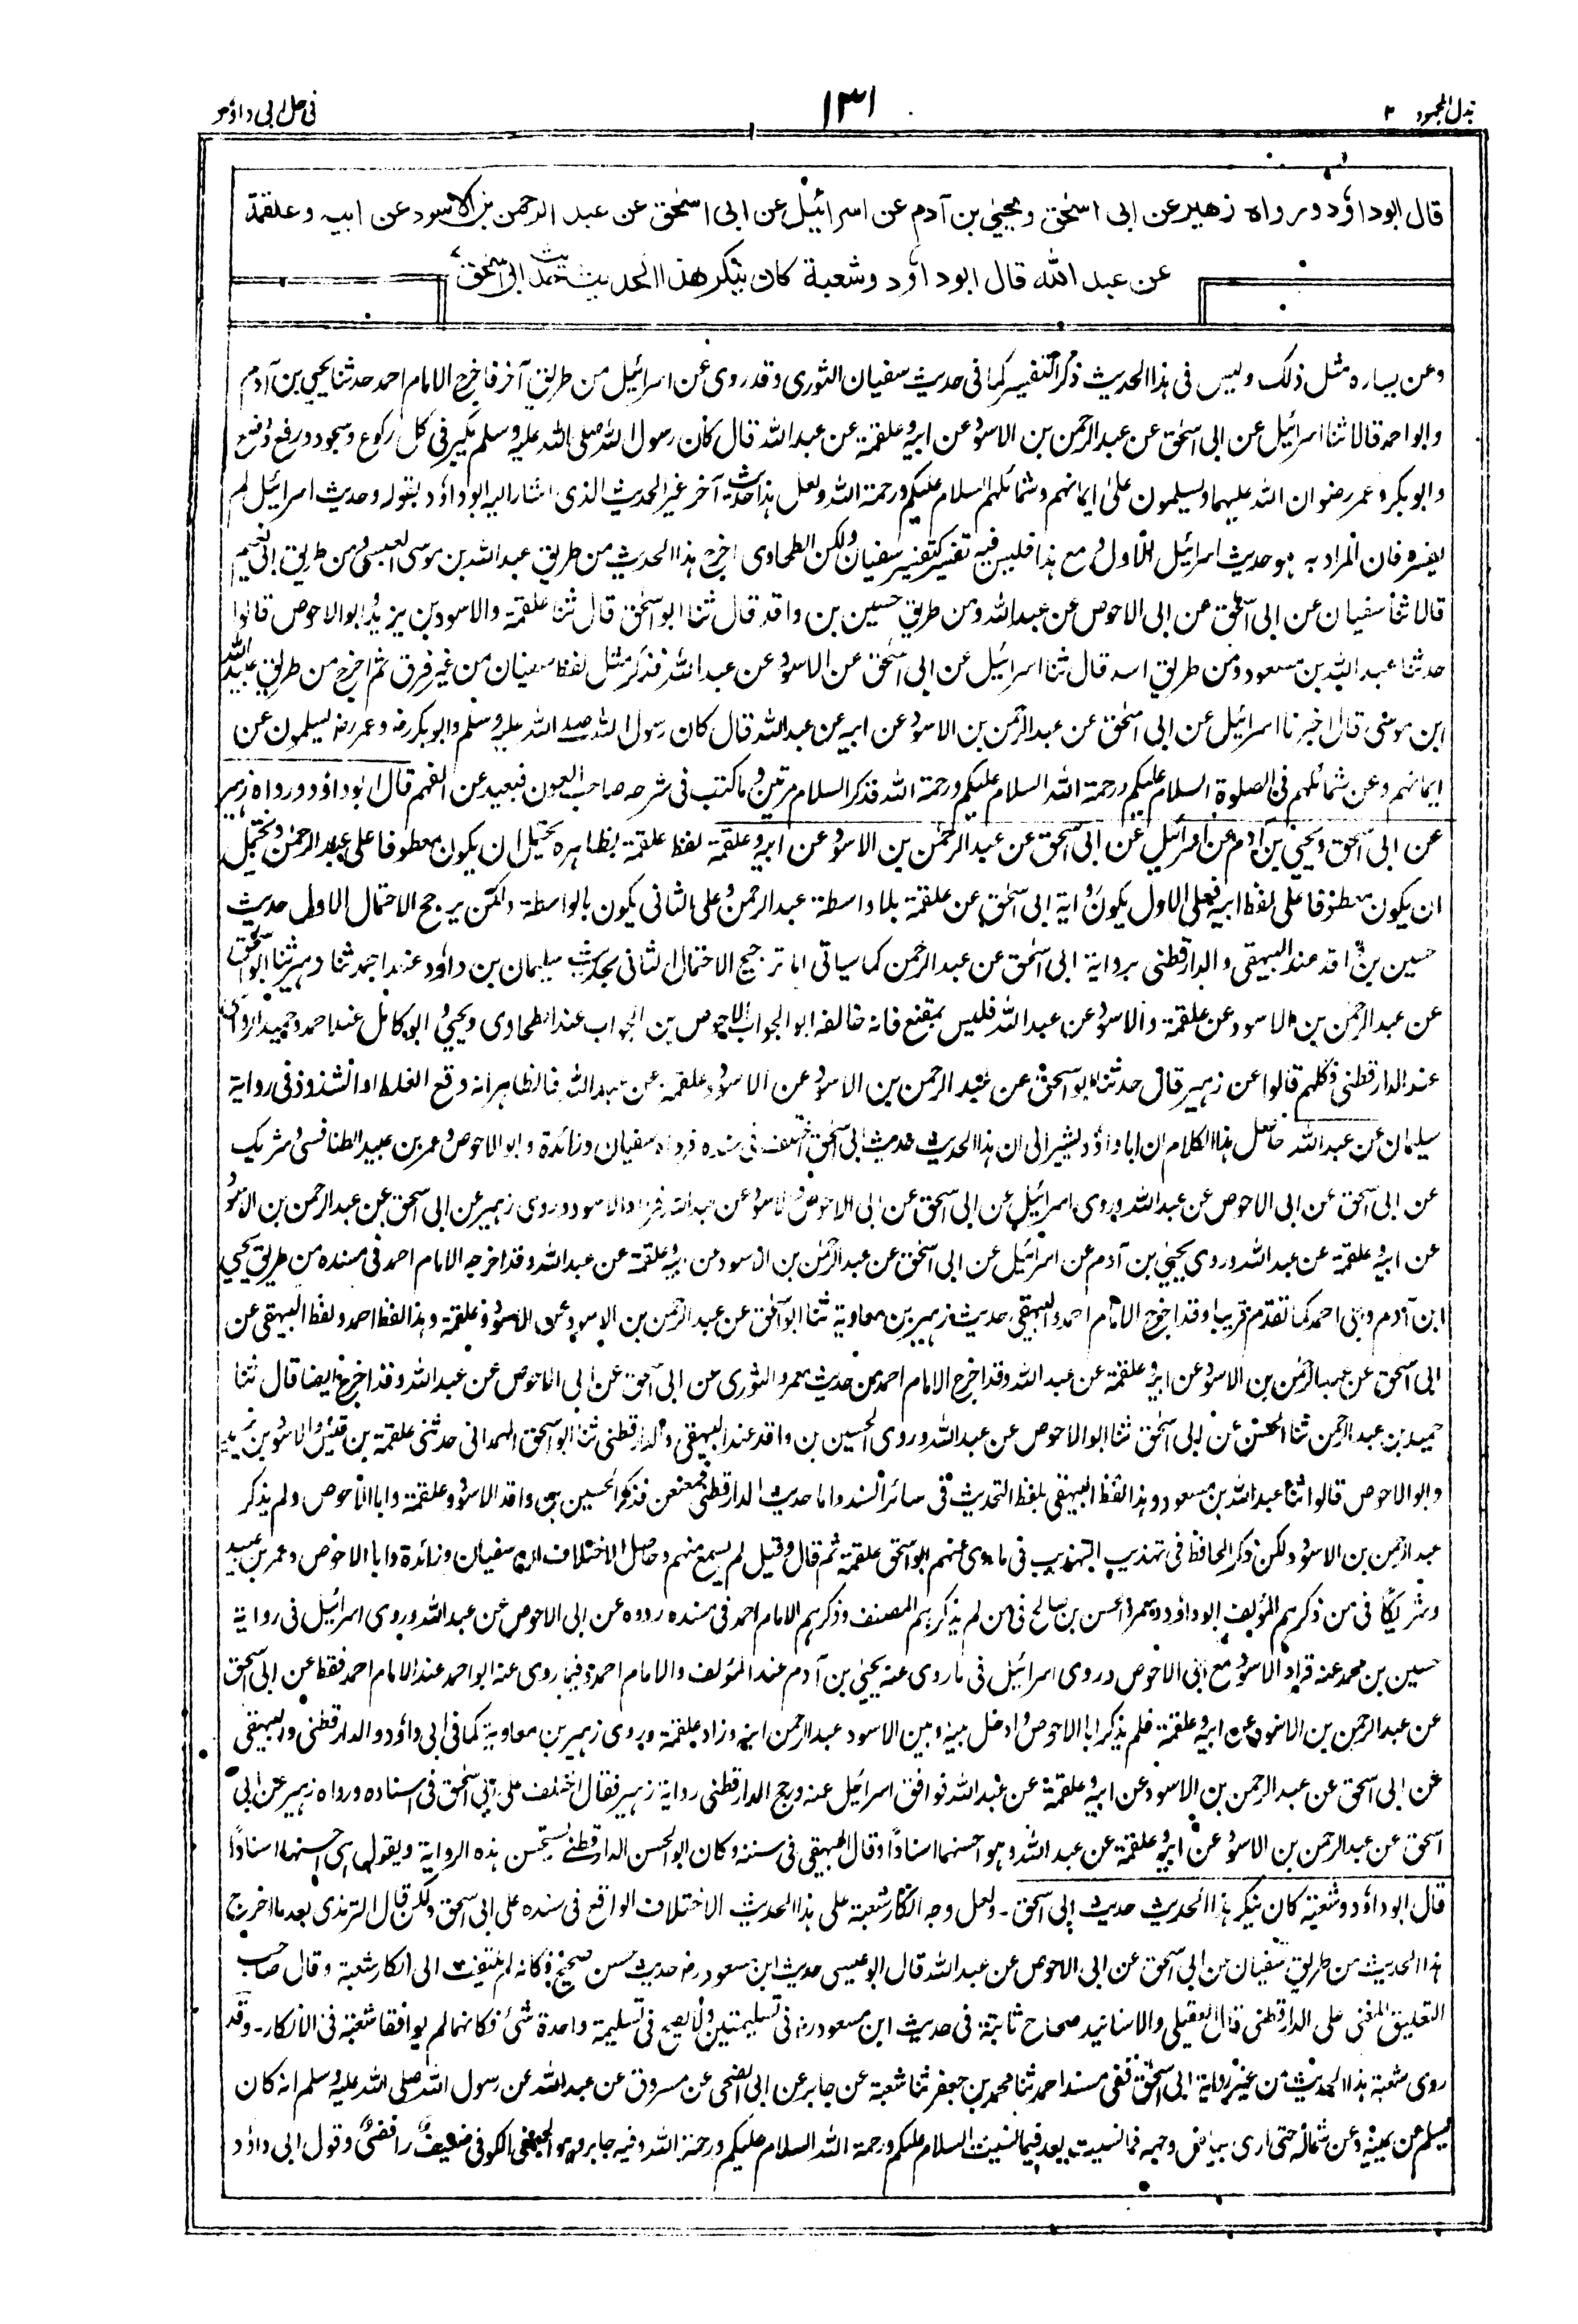 بذل المجهود ٢
١٣١
فى حل ابى داؤد
قال ابوداؤد ورواه زهير عن ابى اسحق ويحيى بن آدم عن اسرائيل عن ابى اسحق عن عبد الرحمن بن الاسود عن ابيه وعلقمة
عن عبد الله قال ابوداؤد وشعبة كان ينكر هذا الحديث حديث ابى اسحق
وعن يساره مثل ذلك وليس فى هذا الحديث ذكر التفسير كما فى حديث سفيان الثورى وقد روى عن اسرائيل من طريق آخر فاخرج الامام احمد حدثنا يحيى بن آدم
وابو احمد قالا ثنا اسرائيل عن ابى اسحق عن عبد الرحمن بن الاسود عن ابيه وعلقمة عن عبد الله قال كان رسول الله صلى الله عليه وسلم يكبر فى كل ركوع وسجود ورفع ووضع
وابو بكر وعمر رضوان الله عليهما ويسلمون على ايمانهم وشمائلهم السلام عليكم ورحمة الله ولعل هذا حديث آخر غير الحديث الذى اشار اليه ابوداؤد بقوله وحديث اسرائيل لم
يفسره فان المراد به هو حديث اسرائيل الاول ومع هذا فليس فيه تفسير كتفسير سفيان ولكن الطحاوى اخرج هذا الحديث من طريق عبد الله بن موسى العبسى ومن طريق ابى نعيم
قالا ثنا سفيان عن ابى اسحق عن ابى الاحوص عن عبد الله ومن طريق حسين بن واقد قال ثنا ابو اسحق قال ثنا علقمة والاسود بن يزيد وابو الاحوص قالوا
حدثنا عبد الله بن مسعود ومن طريق اسد قال ثنا اسرائيل عن ابى اسحق عن الاسود عن عبد الله فذكر مثل لفظ سفيان من غير فرق ثم اخرج من طريق عبيد الله
ابن موسى قال اخبرنا اسرائيل عن ابى اسحق عن عبد الرحمن بن الاسود عن ابيه عن عبد الله قال كان رسول الله صلى الله عليه وسلم وابو بكر رض وعمر رض يسلمون عن
ايمانهم وعن شمائلهم فى الصلوة السلام عليكم ورحمة الله السلام عليكم ورحمة الله فذكر السلام مرتين وما كتب فى شرحه صاحب العون فبعيد عن الفهم قال ابوداؤد ورواه زهير
عن ابى اسحق ويحيى بن آدم عن اسرائيل عن ابى اسحق عن عبد الرحمن بن الاسود عن ابيه وعلقمة لفظ علقمة بظاهره يحتمل ان يكون معطوفا على عبد الرحمن ويحتمل
ان يكون معطوفا على لفظ ابيه فعلى الاول يكون رواية ابى اسحق عن علقمة بلا واسطة عبد الرحمن وعلى الثانى يكون بالواسطة ولكن يرجح الاحتمال الاول حديث
حسين بن واقد عند البيهقى والدارقطنى برواية ابى اسحق عن عبد الرحمن كما سياتى اما ترجيح الاحتمال الثانى بحديث سليمان بن داؤد عند احمد ثنا زهير ثنا ابو اسحق
عن عبد الرحمن بن الاسود عن علقمة والاسود عن عبد الله فليس بمقنع فانه خالفه ابو الجواب الاحوص بن الجواب عند الطحاوى ويحيى وابو كامل عند احمد وحميد الرواسى
عند الدارقطنى فكلهم قالوا عن زهير قال حدثنا ابو اسحق عن عبد الرحمن بن الاسود عن الاسود وعلقمة عن عبد الله فالظاهر انه وقع الغلط او الشذوذ فى رواية
سليمان عن عبد الله حاصل هذا الكلام ان ابا داؤد يشير الى ان هذا الحديث حديث ابى اسحق اختلف فى سنده فرواه سفيان وزائدة وابو الاحوص وعمر بن عبيد الطنافسى وشريك
عن ابى اسحق عن ابى الاحوص عن عبد الله وروى اسرائيل عن ابى اسحق عن ابى الاحوص والاسود عن عبد الله فزاد الاسود وروى زهير عن ابى اسحق عن عبد الرحمن بن الاسود
عن ابيه وعلقمة عن عبد الله وروى يحيى بن آدم عن اسرائيل عن ابى اسحق عن عبد الرحمن بن الاسود عن ابيه وعلقمة عن عبد الله وقد اخرجه الامام احمد فى مسنده من طريق يحيى
ابن آدم وابى احمد كما تقدم قريبا وقد اخرج الامام احمد والبيهقى حديث زهير بن معاوية ثنا ابو اسحق عن عبد الرحمن بن الاسود عن الاسود وعلقمة وهذا لفظ احمد ولفظ البيهقى عن
ابى اسحق عن عبد الرحمن بن الاسود عن ابيه وعلقمة عن عبد الله وقد اخرج الامام احمد من حديث معمر والثورى عن ابى اسحق عن ابى الاحوص عن عبد الله وقد اخرج ايضا قال ثنا
حميد بن عبد الرحمن ثنا الحسن عن ابى اسحق ثنا ابو الاحوص عن عبد الله وروى الحسين بن واقد عند البيهقى والدارقطنى ثنا ابو اسحق الهمدانى حدثنى علقمة بن قيس والاسود بن يزيد
وابو الاحوص قالوا ثنا عبد الله بن مسعود وهذا لفظ البيهقى بلفظ التحديث فى سائر السند واما حديث الدارقطنى فمعنعن فذكر الحسين بن واقد الاسود وعلقمة وابا الاحوص ولم يذكر
عبد الرحمن بن الاسود ولكن ذكر الحافظ فى تهذيب التهذيب فى ما روى عنهم ابو اسحق علقمة ثم قال وقيل لم يسمع منهم وحاصل الاختلاف ان سفيان وزائدة وابا الاحوص وعمر بن عبيد
وشريكا فى من ذكرهم المؤلف ابوداؤد ومعمر والحسن بن صالح فى من لم يذكرهم المصنف وذكرهم الامام احمد فى مسنده رووه عن ابى الاحوص عن عبد الله وروى اسرائيل فى رواية
حسين بن محمد عنه فزاد الاسود مع ابى الاحوص وروى اسرائيل فى ما روى عنه يحيى بن آدم عند المؤلف والامام احمد وفيما روى عنه ابو احمد عند الامام احمد فقط عن ابى اسحق
عن عبد الرحمن بن الاسود عن ابيه وعلقمة فلم يذكر ابا الاحوص وادخل بينه وبين الاسود عبد الرحمن ابنه وزاد علقمة وروى زهير بن معاوية كما فى ابى داؤد والدارقطنى والبيهقى
عن ابى اسحق عن عبد الرحمن بن الاسود عن ابيه وعلقمة عن عبد الله فوافق اسرائيل عنه ورجح الدارقطنى رواية زهير فقال اختلف على ابى اسحق فى اسناده ورواه زهير عن ابى
اسحق عن عبد الرحمن بن الاسود عن ابيه وعلقمة عن عبد الله وهو احسنهما اسنادا وقال البيهقى فى سننه وكان ابو الحسن الدارقطنى يستحسن هذه الرواية ويقول هى احسنها اسنادا
قال ابوداؤد وشعبة كان ينكر هذا الحديث حديث ابى اسحق - ولعل وجه انكار شعبة على هذا الحديث الاختلاف الواقع فى سنده على ابى اسحق ولكن قال الترمذى بعد ما اخرج
هذا الحديث من طريق سفيان عن ابى اسحق عن ابى الاحوص عن عبد الله قال ابو عيسى حديث ابن مسعود رض حديث حسن صحيح فكانه لم يلتفت الى انكار شعبة وقال صاحب
التعليق المغنى على الدارقطنى قال العقيلى والاسانيد صحاح ثابتة فى حديث ابن مسعود رض فى تسليمتين ولا يصح فى تسليمة واحدة شئ فكانهما لم يوافقا شعبة فى الانكار - وقد
روى شعبة هذا الحديث من غير رواية ابى اسحق ففى مسند احمد ثنا محمد بن جعفر ثنا شعبة عن جابر عن ابى الضحى عن مسروق عن عبد الله عن رسول الله صلى الله عليه وسلم انه كان
يسلم عن يمينه وعن شماله حتى ارى بياض وجهه فما نسيت بعد فيما نسيت السلام عليكم ورحمة الله السلام عليكم ورحمة الله وفيه جابر وهو الجعفى الكوفى ضعيف رافضى وقول ابى داؤد